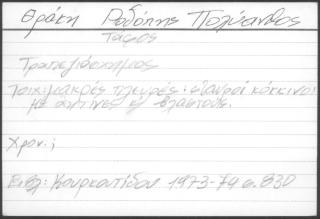 Θράκη Ροδόπης Πολύανθος
Τάφος
Τραπεζιόσχημος
Τοιχ. μακρές πλευρές: σταυροί κόκκινοι
με ακτίνες κ βλαστούς.
Χρον. ;
Βιβλ: Κουρκουτίδου 1973-74 σ. 830